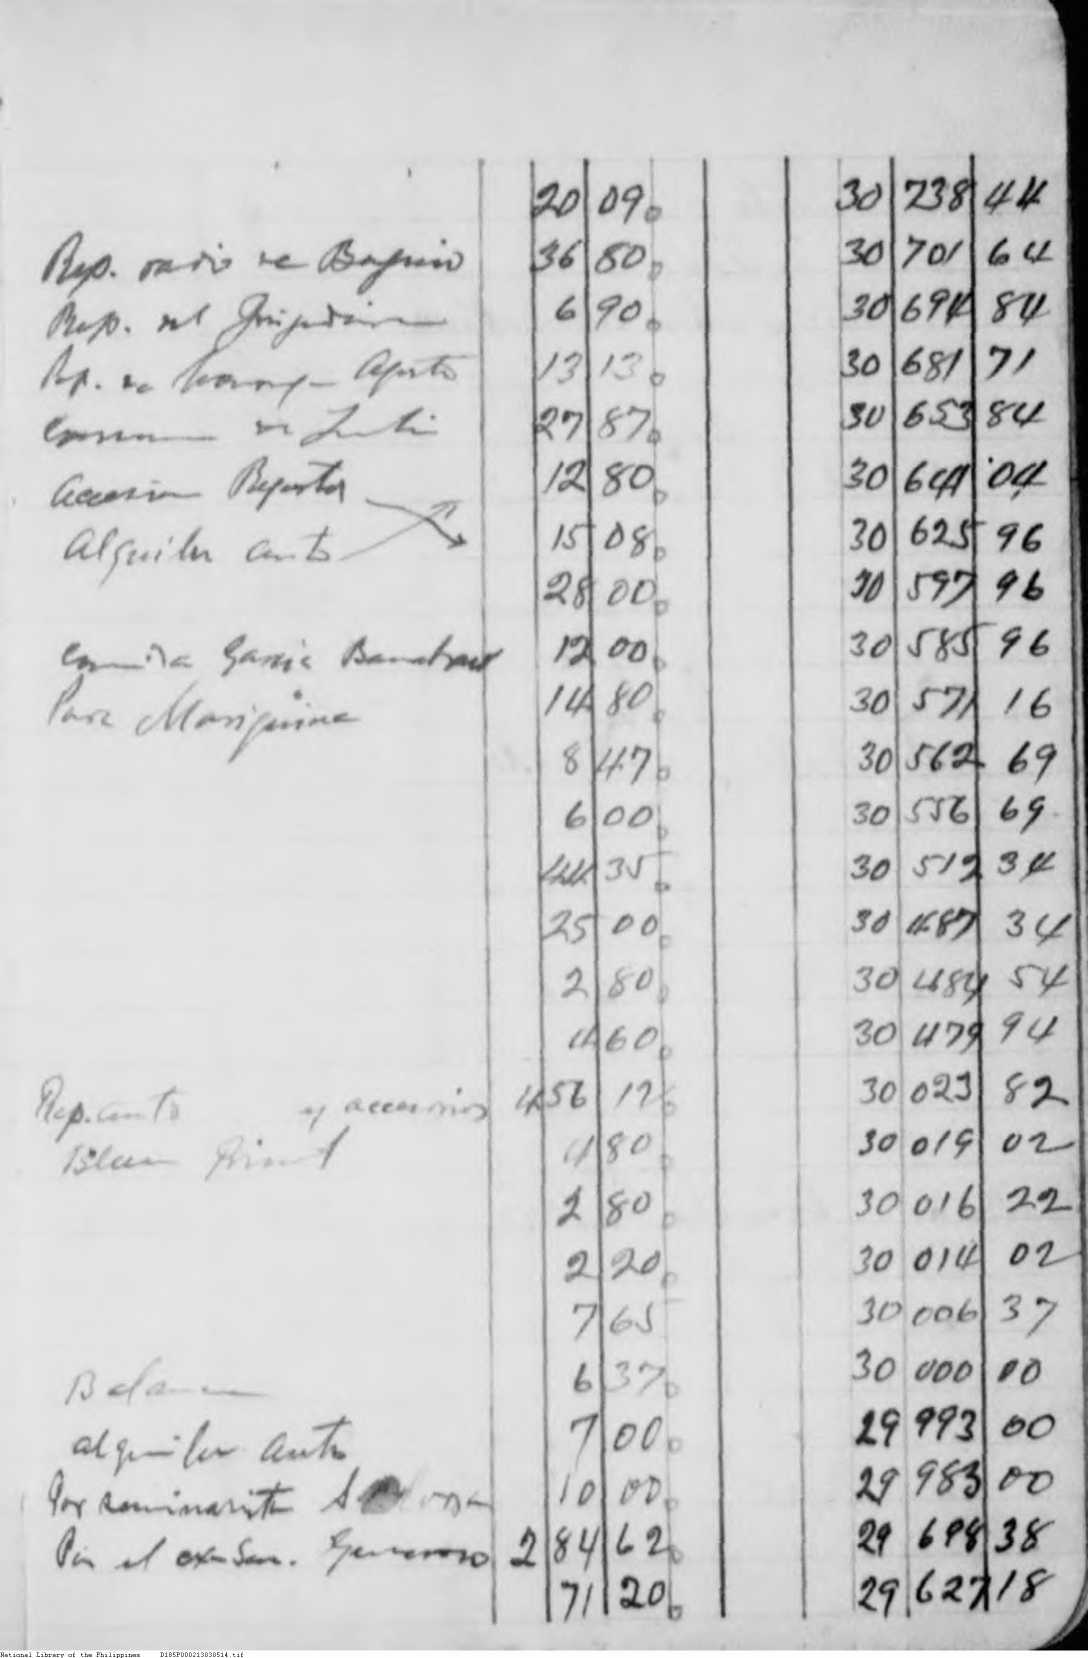 20 09 30 738 44
Rep. radio de Baguio 36 80 30 701 64
Rep. del 6 90 30 694 84
Rp. de Agosto 13 13 30 681 71
27 87 30 653 84
Accesion Reportes 12 80 30 641 04
Alquiler auto 15 08 30 625 96
28 00 30 597 96
Comida Garcia 12 00 30 585 96
Para Mariquina 14 80 30 571 16
8 47 30 562 69
6 00 30 556 69
44 35 30 512 34
25 00 30 487 34
2 80 30 484 54
4 60 30 479 94
Rep. auto y accesorios 456 12 30 023 82
Blue print 4 80 30 019 02
2 80 30 016 22
2 20 30 014 02
7 65 30 006 37
Balance 6 37 30 000 00
alquiler auto 7 00 29 993 00
Por seminarista 10 00 29 983 00
Por el exSen. Generoso 2 84 62 29 698 38
71 20 29 627 18
National Library of the Philippines D185P000213030514.tif